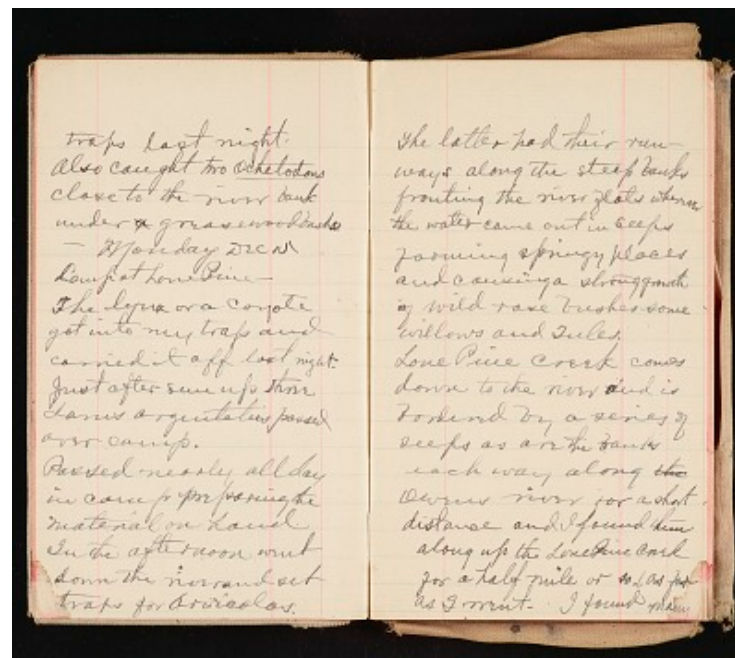 traps last night.
Also caught two Ochetodons
close to the river bank
under greasewood bushes
— Monday Dec
Camp at Lone Pine —
The lynx or a coyote
got into my trap and
carried it off last night.
Just after sun up three
Larus argentatus passed
over camp.
Passed nearly all day
in camp preparing the
material on hand
In the afternoon went
down the river and set
traps for Arvicolas.
The latter had their run-
ways along the steep banks
fronting the river flats where
the water came out in seeps
forming springy places
and causing a strong growth
of wild rose bushes some
willows and Tules.
Lone Pine Creek comes
down to the river and is
bordered by a series of
seeps as are the banks
each way along the
Owens river for a short
distance and I found
along up the Lone Pine Creek
for a half mile or so as far
as I went. I found many